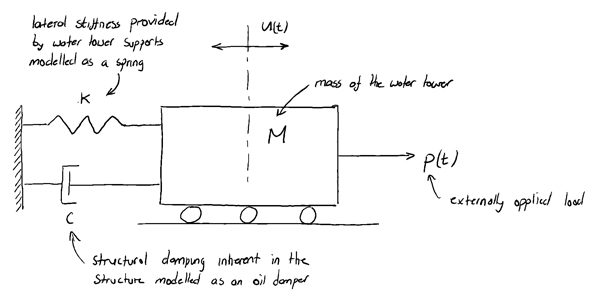 lateral stiffness provided
by water tower supports
modelled as a spring
u(t)
K
mass of the water tower
M
p(t)
externally applied load
C
structural damping inherent in the
structure modelled as an oil damper